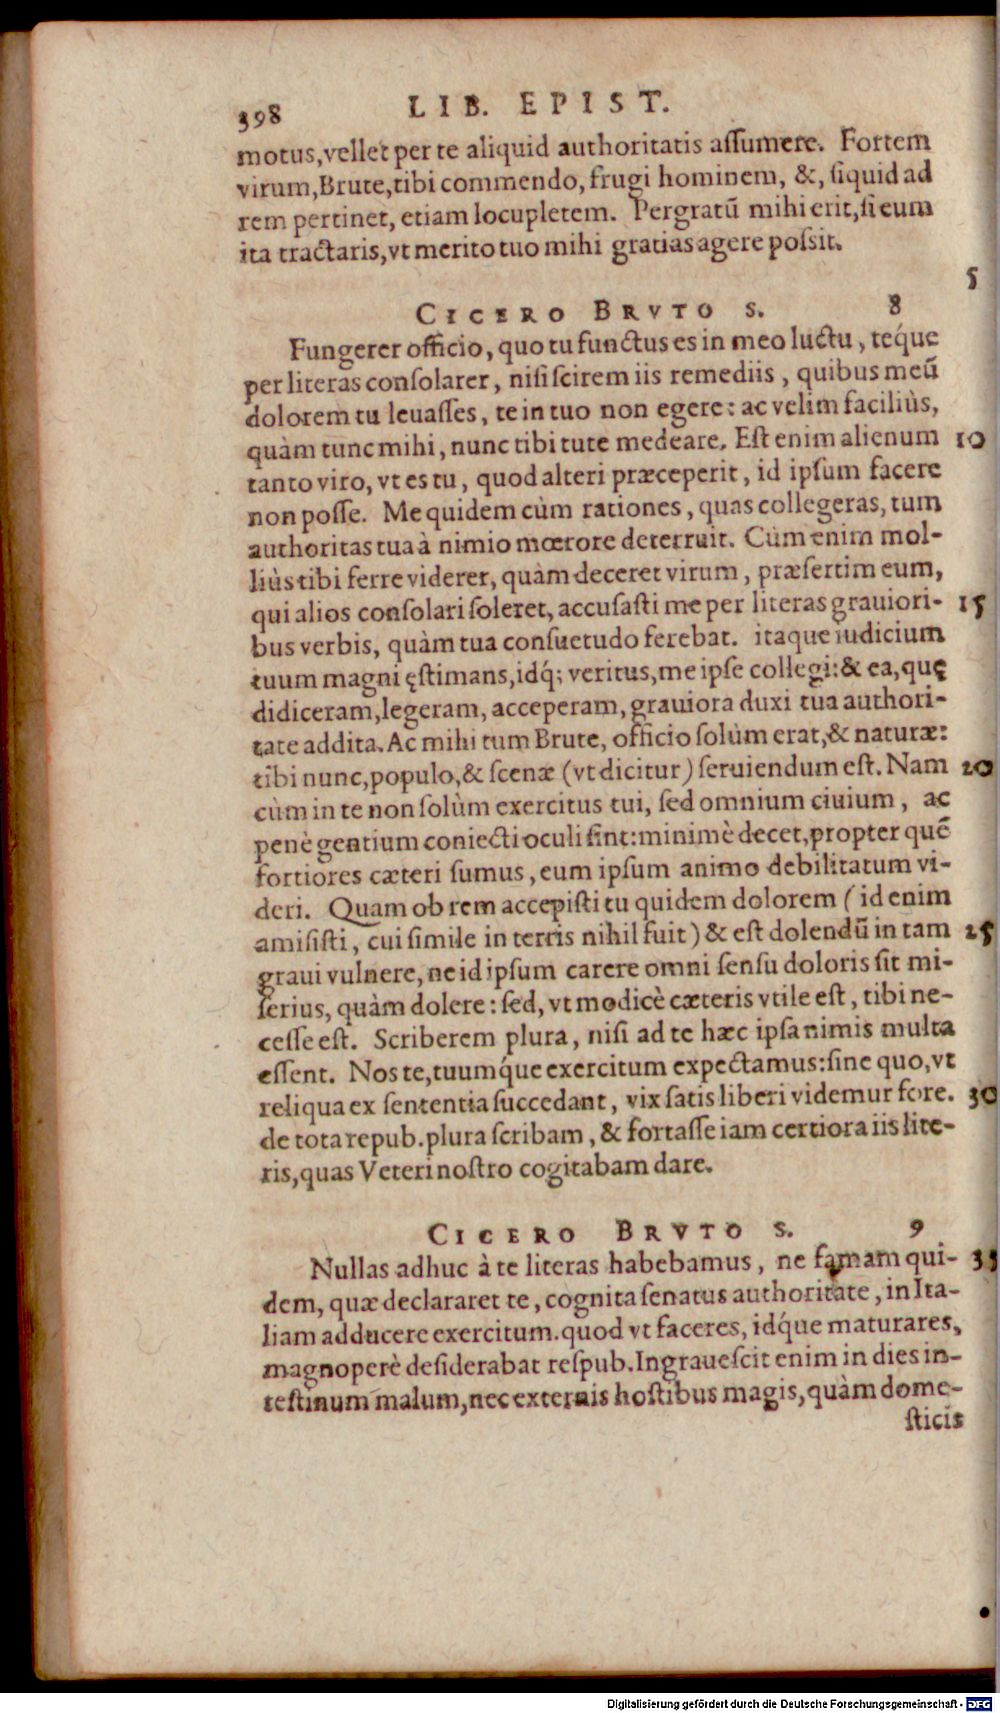 398 LIB. EPIST.
motus, vellet per te aliquid authoritatis aſſumere. Fortem
virum, Brute, tibi commendo, frugi hominem, &, ſiquid ad
rem pertinet, etiam locupletem. Pergratũ mihi erit, ſi eum
ita tractaris, vt merito tuo mihi gratias agere poſsit.
5
CICERO BRVTO S. 8
Fungerer officio, quo tu functus es in meo luctu, teq́ue
per literas conſolarer, niſi ſcirem iis remediis, quibus meũ
dolorem tu leuaſſes, te in tuo non egere: ac velim faciliùs,
quàm tunc mihi, nunc tibi tute medeare. Eſt enim alienum 10
tanto viro, vt es tu, quod alteri præceperit, id ipſum facere
non poſſe. Me quidem cùm rationes, quas collegeras, tum
authoritas tua à nimio mœrore deterruit. Cùm enim mol-
liùs tibi ferre viderer, quàm deceret virum, præſertim eum,
qui alios conſolari ſoleret, accuſaſti me per literas grauiori- 15
bus verbis, quàm tua conſuetudo ferebat. itaque iudicium
tuum magni ęſtimans, idq́; veritus, me ipſe collegi: & ea, quę
didiceram, legeram, acceperam, grauiora duxi tua authori-
tate addita. Ac mihi tum Brute, officio ſolùm erat, & naturæ:
tibi nunc, populo, & ſcenæ (vt dicitur) ſeruiendum eſt. Nam 20
cùm in te non ſolùm exercitus tui, ſed omnium ciuium, ac
penè gentium coniecti oculi ſint: minimè decet, propter quẽ
fortiores cæteri ſumus, eum ipſum animo debilitatum vi-
deri. Quam ob rem accepiſti tu quidem dolorem (id enim
amiſiſti, cui ſimile in terris nihil fuit) & eſt dolendũ in tam 25
graui vulnere, ne id ipſum carere omni ſenſu doloris ſit mi-
ſerius, quàm dolere: ſed, vt modicè cæteris vtile eſt, tibi ne-
ceſſe eſt. Scriberem plura, niſi ad te hæc ipſa nimis multa
eſſent. Nos te, tuumq́ue exercitum expectamus: ſine quo, vt
reliqua ex ſententia ſuccedant, vix ſatis liberi videmur fore. 30
de tota repub. plura ſcribam, & fortaſſe iam certiora iis lite-
ris, quas Veteri noſtro cogitabam dare.
CICERO BRVTO S. 9
Nullas adhuc à te literas habebamus, ne famam qui- 35
dem, quæ declararet te, cognita ſenatus authoritate, in Ita-
liam adducere exercitum. quod vt faceres, idq́ue maturares,
magnoperè deſiderabat reſpub. Ingraueſcit enim in dies in-
teſtinum malum, nec externis hoſtibus magis, quàm dome-
ſticis
Digitalisierung gefördert durch die Deutsche Forschungsgemeinschaft - DFG